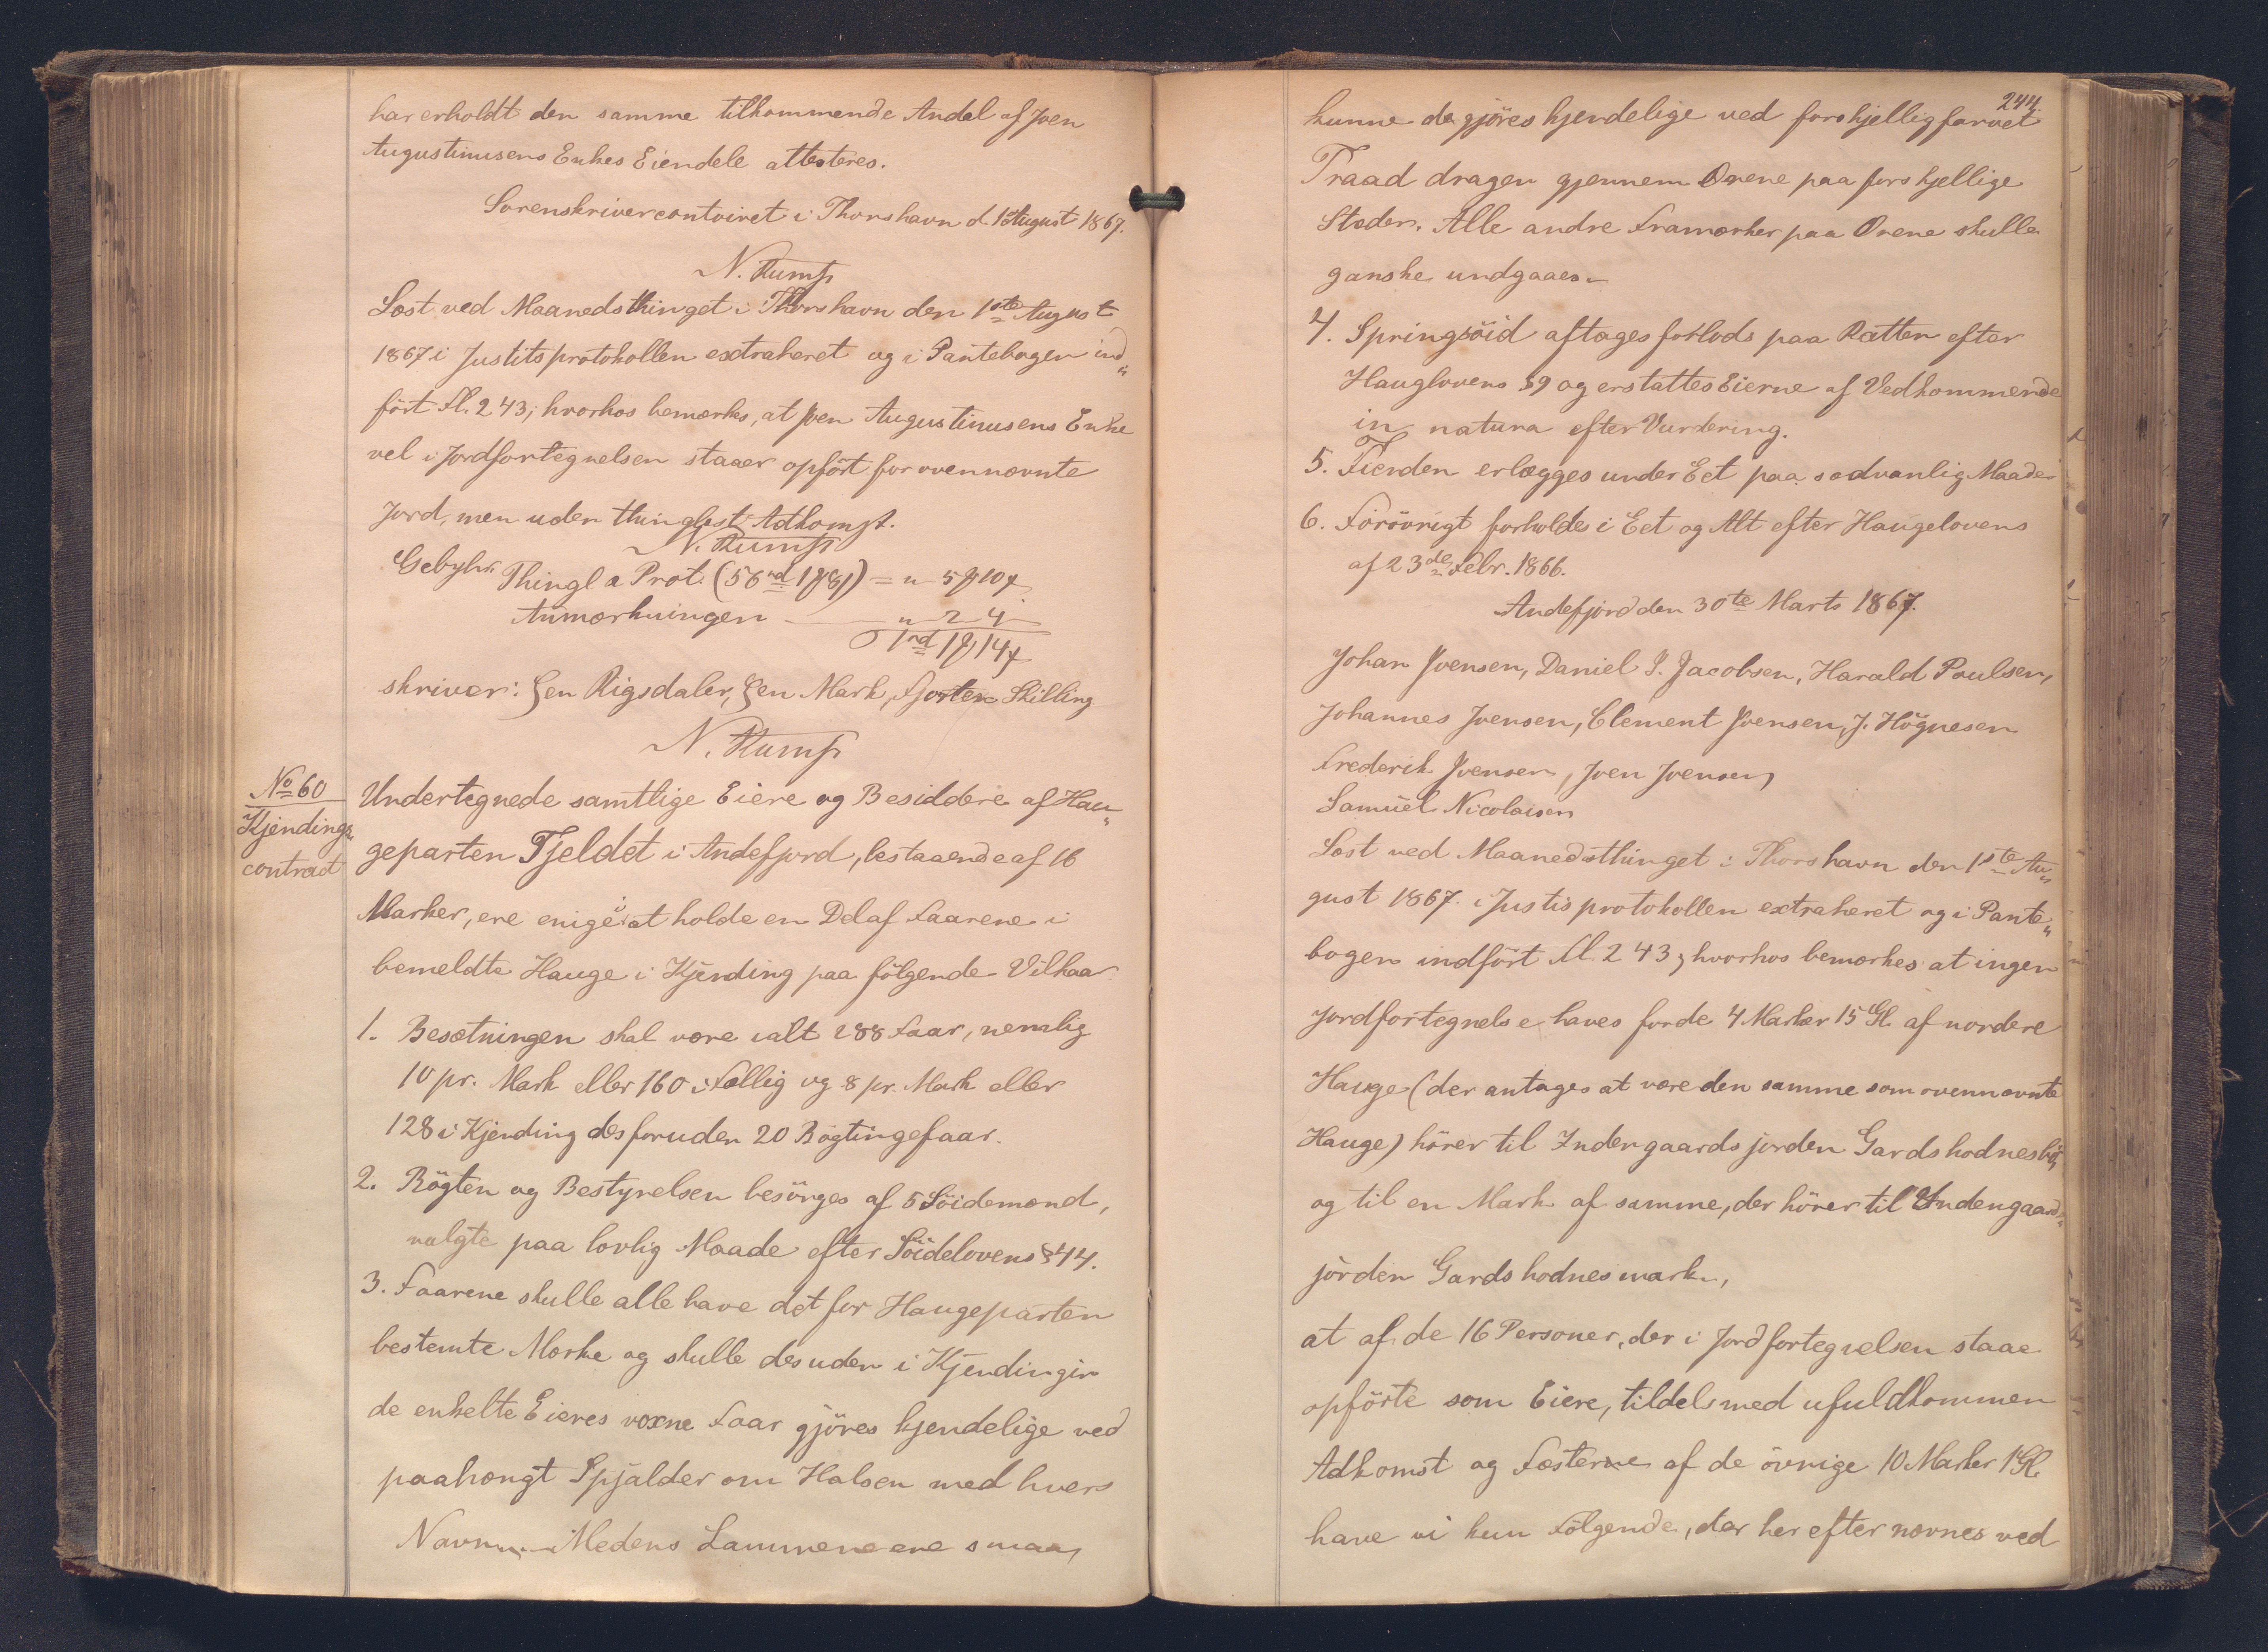 har erholdt den samme tilkommende Andel af Joen
Augustinusens Enkes Eiendele attesteres.
Sorenskrivercontoiret i Thorshavn d. 1 August 1867.
N. Rump
Læst ved Maanedsthinget i Thorshavn den 1ste August
1867 i Justitsprotokollen extraheret og i Pantebogen ind„
fört Fl. 243; hvorhos bemærkes, at Joen Augustinusens Enke
vel i Jordfortegnelsen staaer opfört for ovennævnte
Jord, men uden thinglæst Adkomst.
N. Rump
Gebyhr. Thingl a Prot.
Anmærkningen
skriver: en Rigsdaler, en Mark, fjorten Skilling
N. Rump
No 60
Kjendings„
contract
Undertegnede samtlige Eiere og Besiddere af Hau„
geparten Fjeldet i Andefjord, bestaaende af 16
Marker, ere enige i at holde en Del af Faarene i
bemeldte Hauge i Kjending paa fölgende Vilkaar
1. Besætningen skal være ialt 288 Faar, nemlig
10 pr. Mark eller 160 i Fællig og 8 pr. Mark eller
128 i Kjending desforuden 20 Rögtingefaar.
2. Rögten og Bestyrelsen besörges af 5 Söidemænd,
valgte paa lovlig Maade efter Söidelovens § 44.
3. Faarene skulle alle have det for Haugeparten
bestemte Mærke og skulle desuden i Kjendingen
de enkelte Eieres voxne Faar gjöres kjendelige ved
paahængt Spjalder om Halsen med hvers
Navn Medens Lammene ere smaa,
244.
kunne de gjöres kjendelige ved forskjellig farvet
Traad dragen gjennem Örene paa forskjellige
Steder. Alle andre Framærker paa Örene skulle
ganske undgaaes.
4. Springsöid aftages forlods paa Rætten efter
Hauglovens § 9 og erstattes Eierne af Vedkommende
in natura efter Vurdering.
5. Tienden erlægges under Eet paa sædvanlig Maade
6. Forövrigt forholdes i Eet og Alt efter Haugelovens
af 23de Febr. 1866.
Andefjord den 30te Marts 1867.
Johan Joensen, Daniel J. Jacobsen, Harald Poulsen,
Johannes Joensen, Clement Joensen, J. Högnesen
Frederik Joensen, Joen Joensen,
Samuel Nicolaisen
Læst ved Maanedsthinget i Thorshavn den 1ste Au„
gust 1867. i Justisprotokollen extraheret og i Pante„
bogen indfört Fl. 243, hvorhos bemærkes at ingen
Jordfortegnelse haves for de 4 Marker 15 Gl. af nordere
Hauge (der antages at være den samme som ovennævnte
Hauge) hörer til Indengaardsjorden Gardshodnesbö,
og til en Mark af samme, der hörer til Undengaards„
jorden Gardshodnesmark,
at af de 16 Personer, der i Jordfortegnelsen staae
opförte som Eiere, tildels med ufuldkommen
Adkomst og Fæsterne af de övrige 10 Marker 1 Gl.
have vi kun Fölgende, der herefter nævnes ved